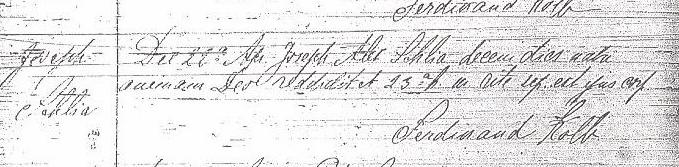 Ferdinand Kolb
Joseph
Die 22ª Apr. Joseph Alb Schlia decem dies natu
animam Deo reddidit et 23ª rite sep. est ejus corp.
Ferdinand Kolb